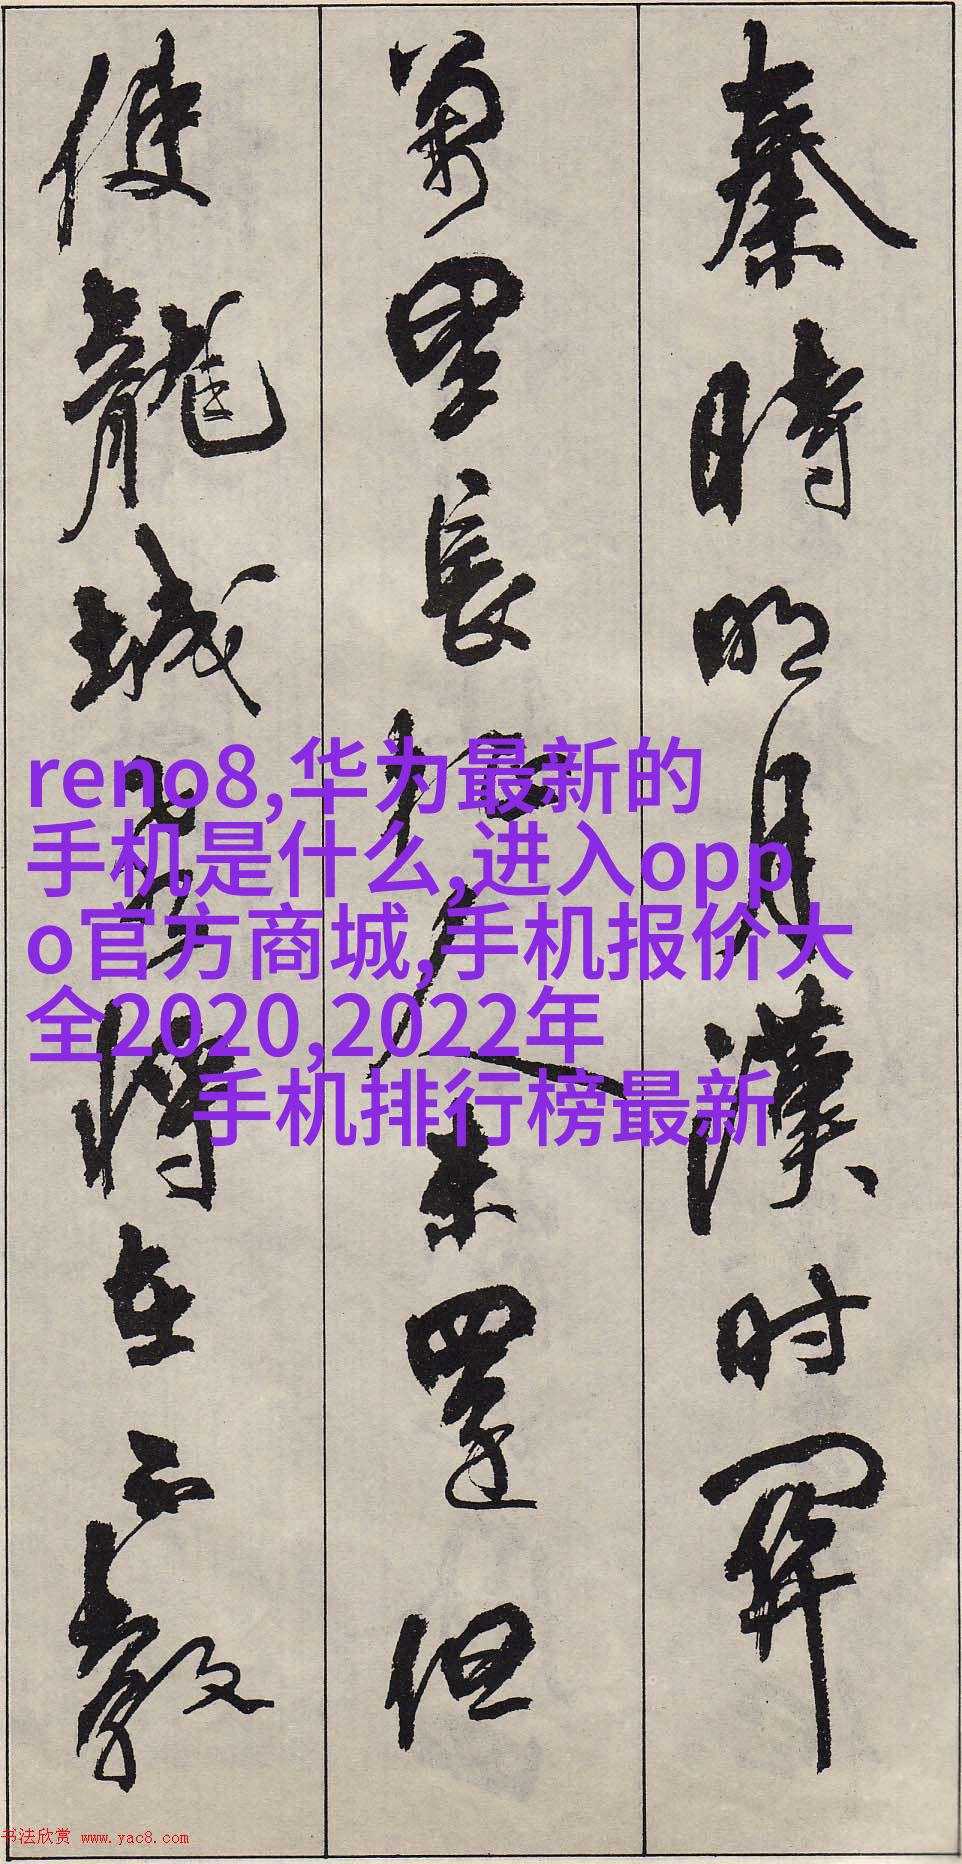 秦時明月漢时關
萬里長征人未還但
使龍城飛將在不教
reno8,华为最新的
手机是什么,进入opp
o官方商城,手机报价大
全2020,2022年
手机排行榜最新
书法欣赏 www.yac8.com